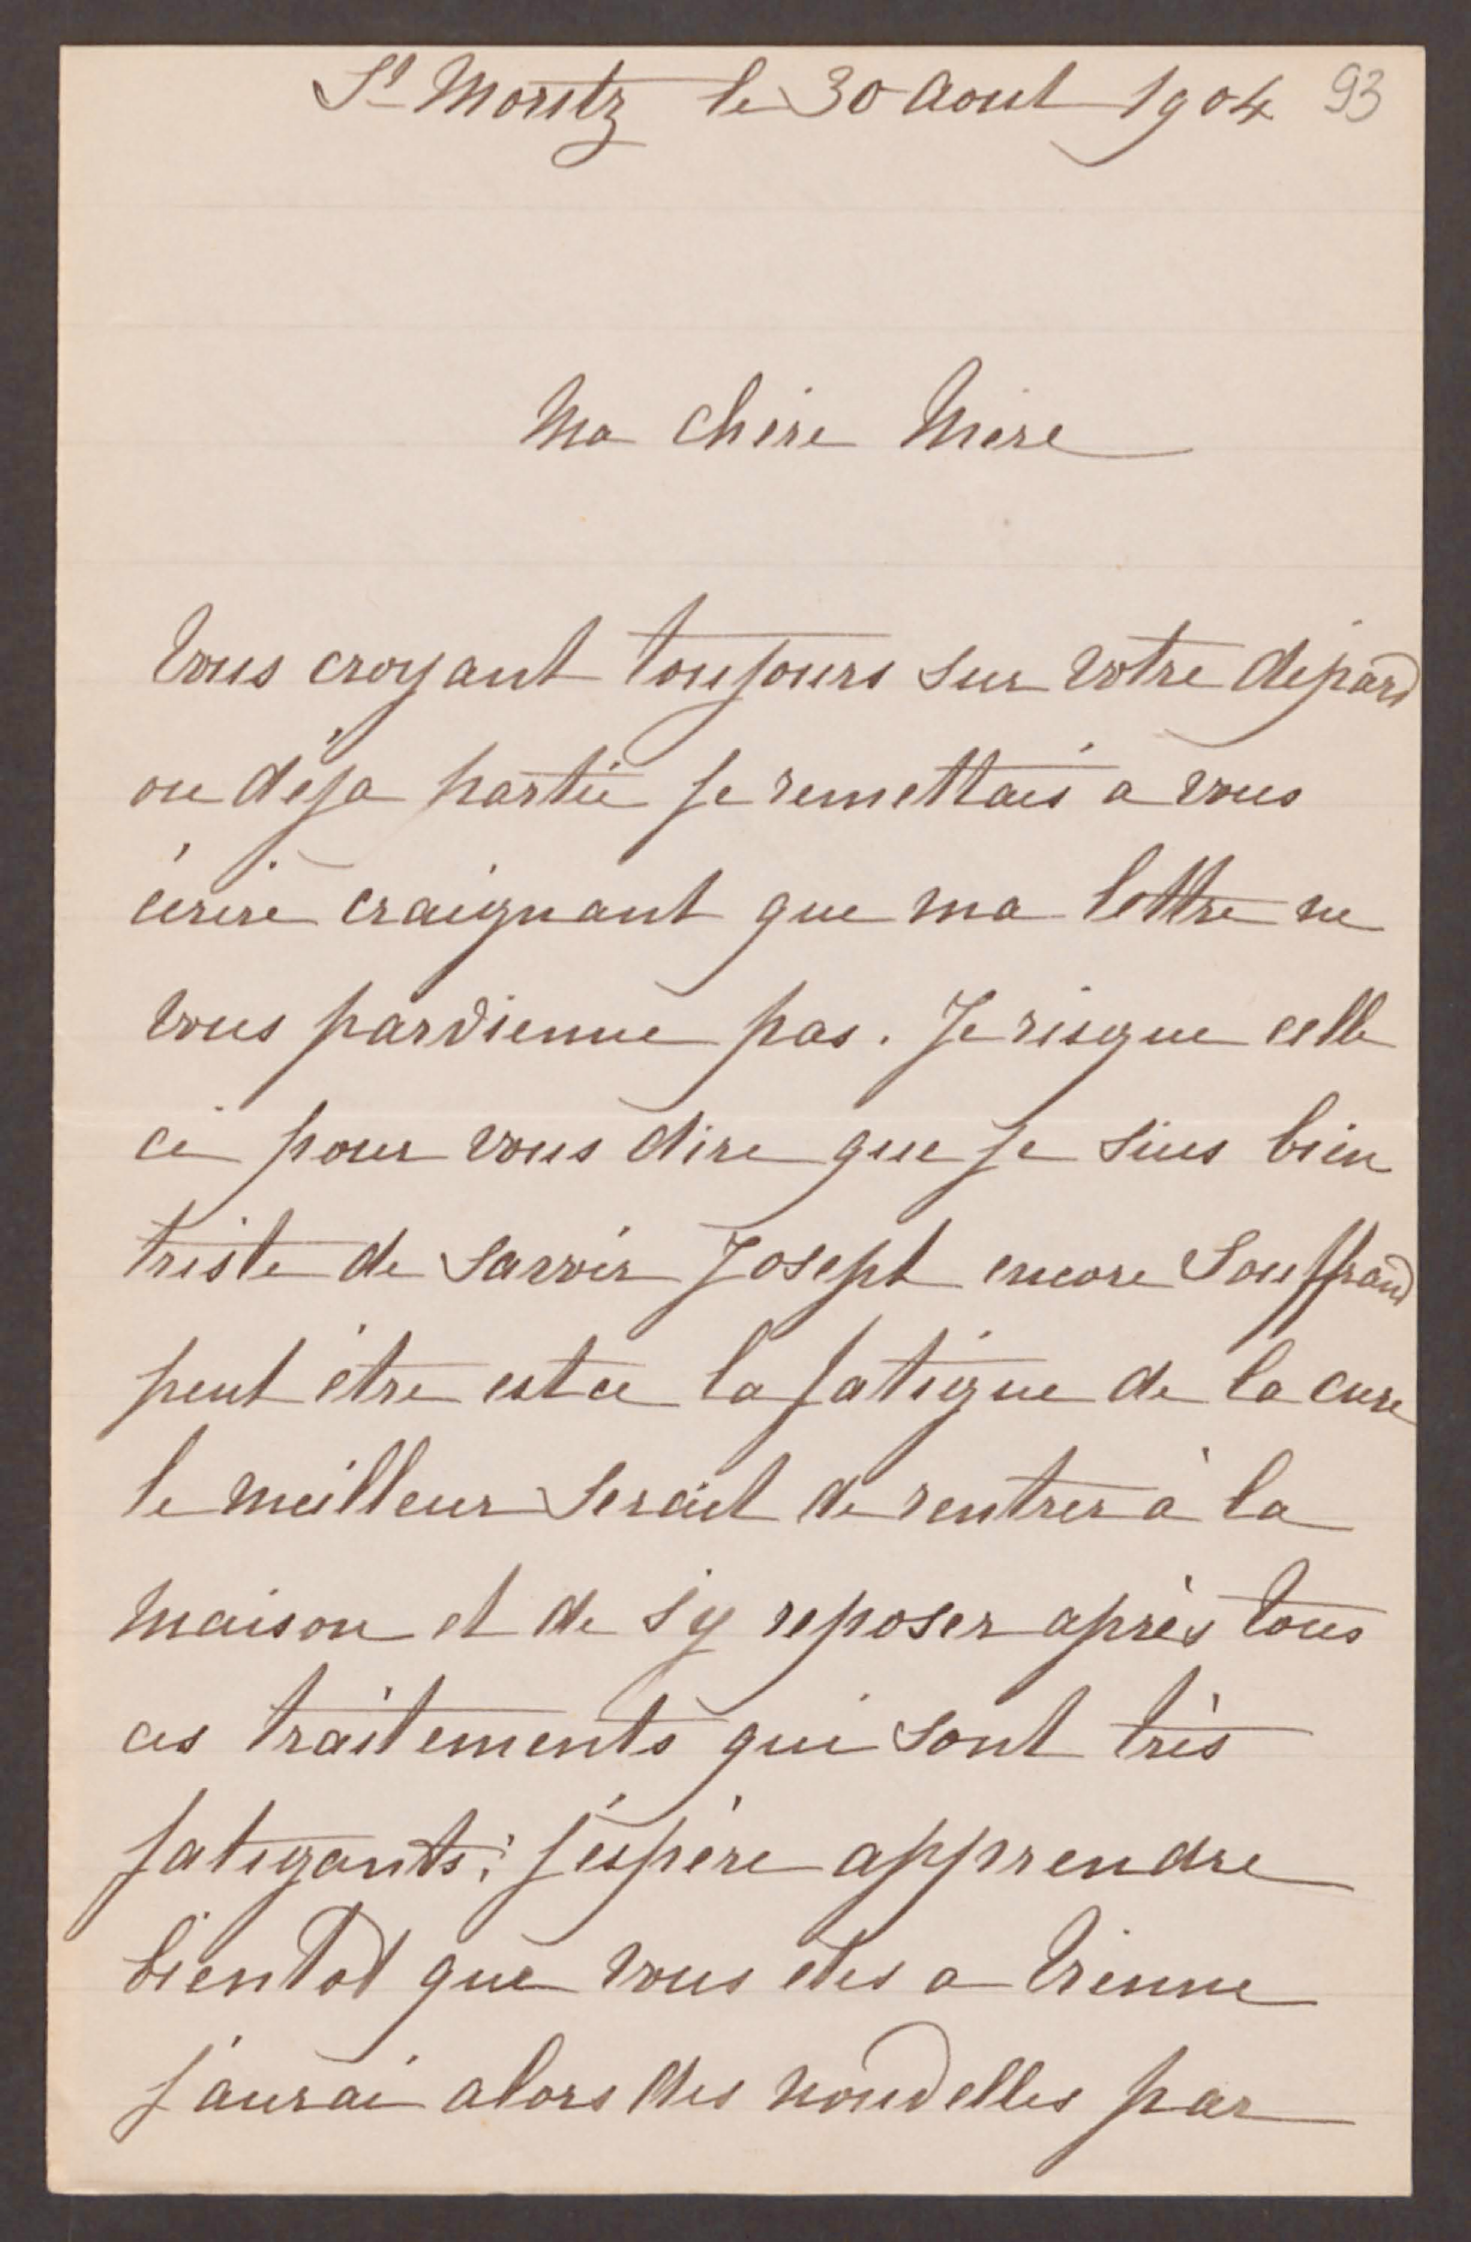 St Moritz le 30 Aout 1904 93
Ma chère Mère
Vous croyant toujours sur votre départ
ou déja partie je remettais a vous
écrire craignant que ma lettre ne
vous parvienne pas. Je risque celle
ci pour vous dire que je suis bien
triste de savoir Joseph encore souffrant
peut être est ce la fatigue de la cure
le meilleur serait de rentrer à la
maison et de s'y reposer après tous
ces traitements qui sont très
fatigants; j'espère apprendre
bientot que vous etes a Vienne
j'aurai alors des nouvelles par